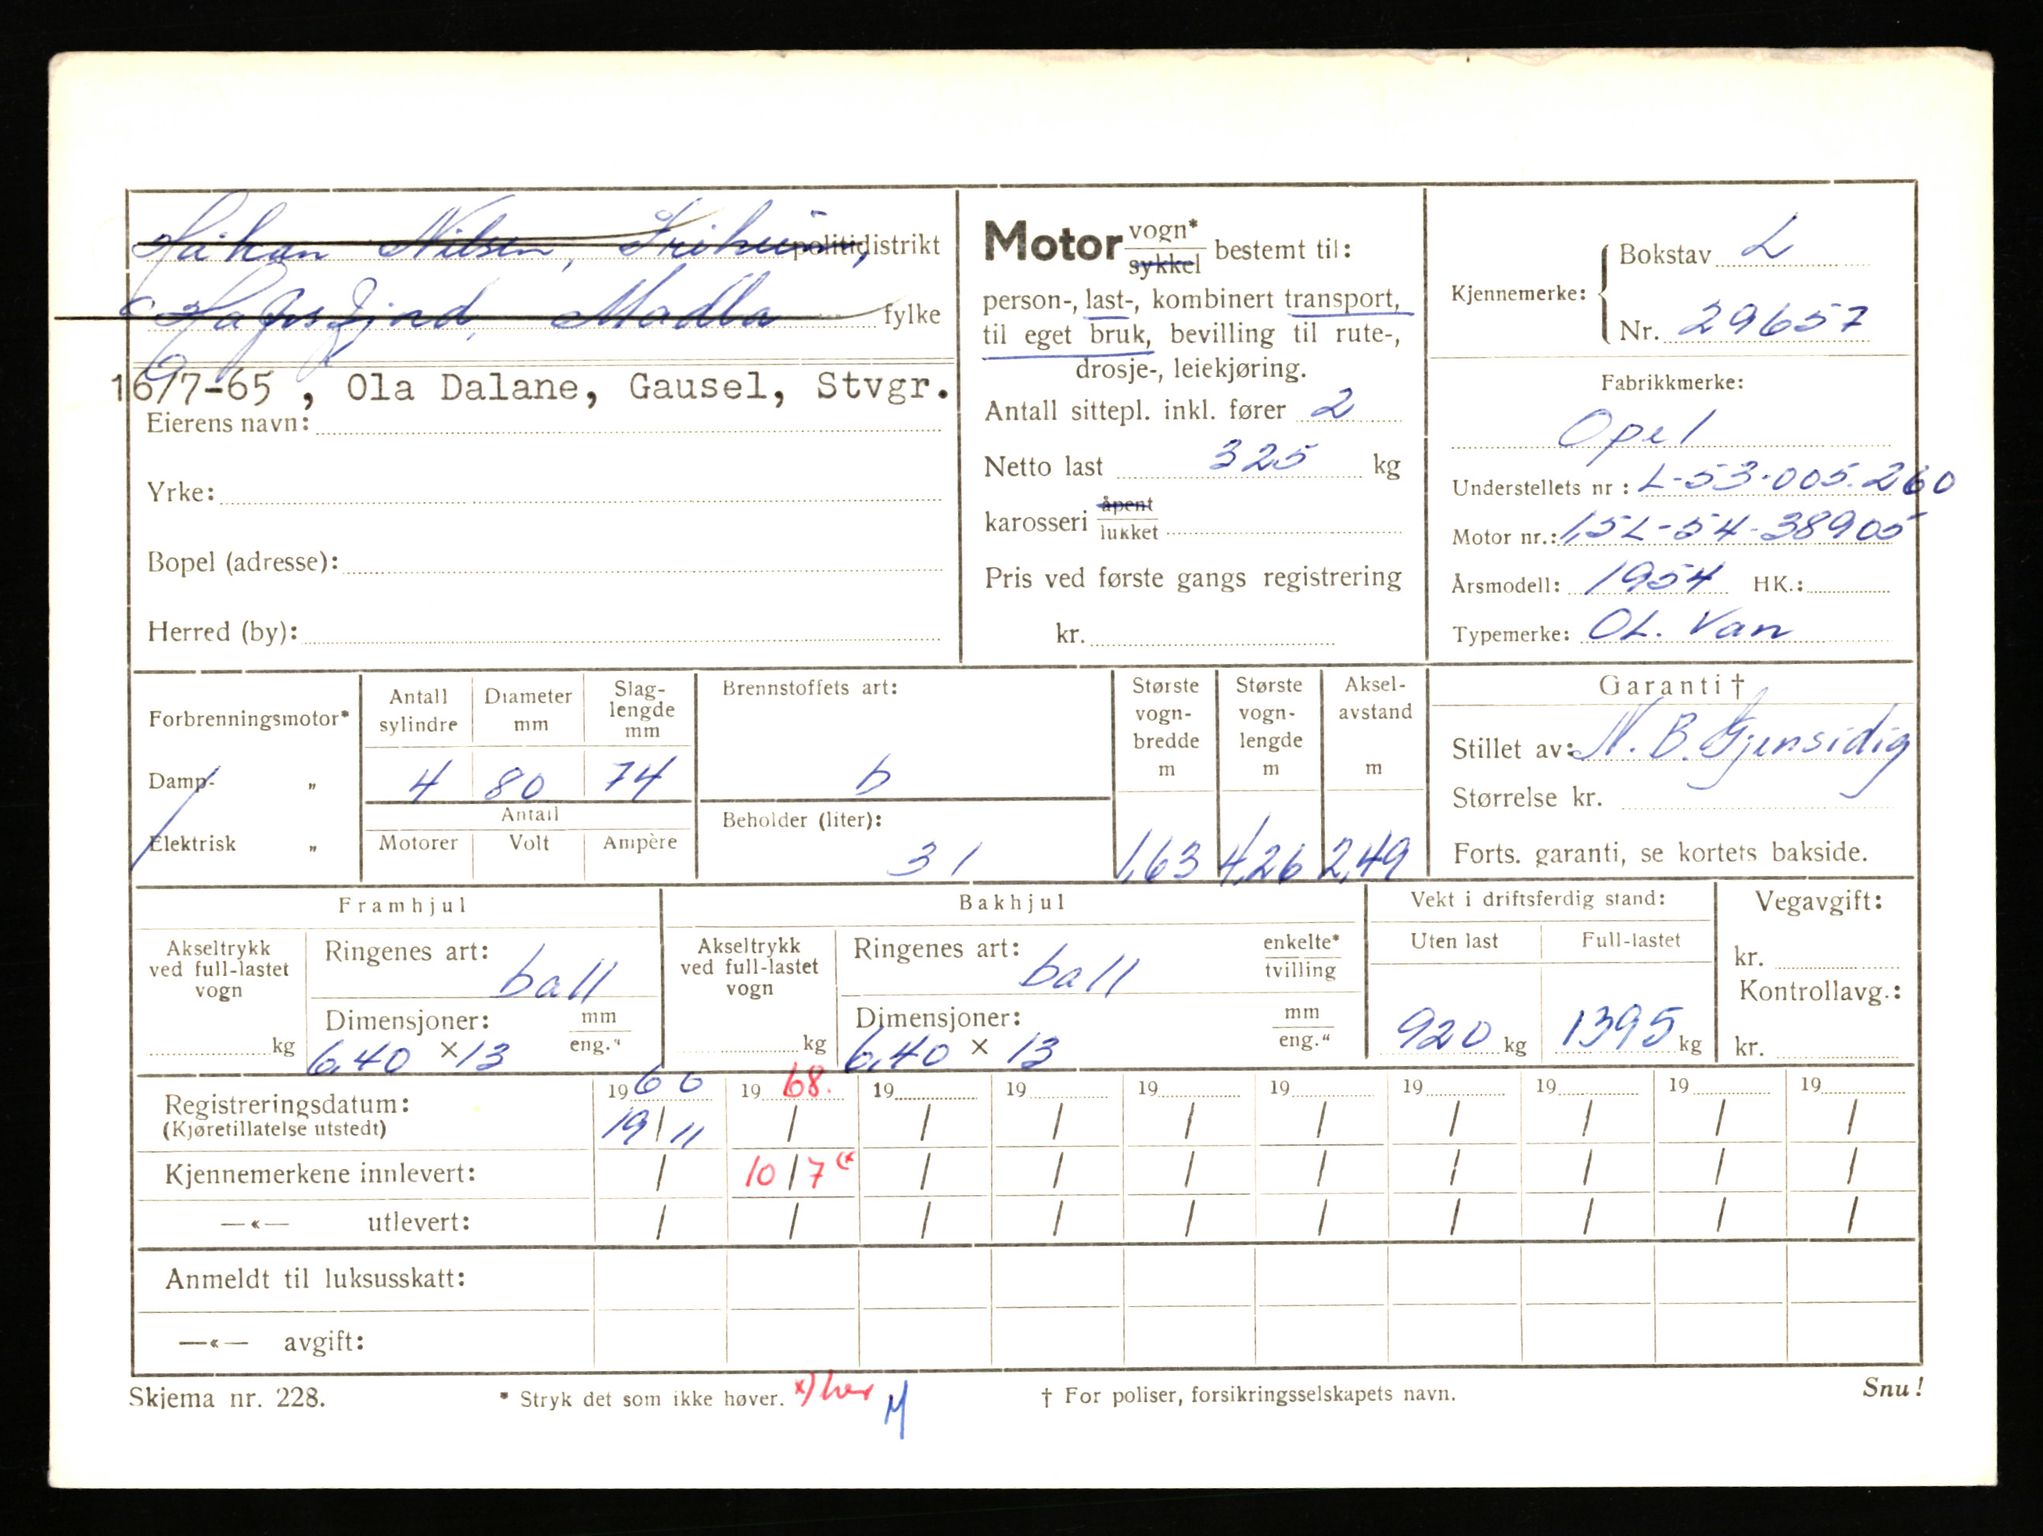 Håkon Nilsen, politidistrikt
Hafrsfjord, Madla fylke
16/7-65 , Ola Dalane, Gausel, Stvgr.
Eierens navn:
Yrke:
Bopel (adresse):
Herred (by):
Motor vogn* sykkel bestemt til:
person-, last-, kombinert transport,
til eget bruk, bevilling til rute-,
drosje-, leiekjøring.
Antall sittepl. inkl. fører 2
Netto last 325 kg
karosseri åpent lukket
Pris ved første gangs registrering
kr.
Kjennemerke: Bokstav L
Nr. 29657
Fabrikkmerke:
Opel
Understellets nr : L-53.005.260
Motor nr.: 1,5L-54-38905
Årsmodell: 1954 HK.:
Typemerke: OL. Van
Forbrenningsmotor*
Damp- „
Elektrisk „
Antall sylindre
Diameter mm
Slag-lengde mm
4 80 74
Antall
Motorer Volt Ampère
Brennstoffets art:
b
Beholder (liter):
31
Største vogn-bredde m
1,63
Største vogn-lengde m
4,26
Aksel-avstand m
2,49
Garanti †
Stillet av: N. B. Gjensidig
Størrelse kr.
Forts. garanti, se kortets bakside.
Framhjul
Akseltrykk ved full-lastet vogn
kg
Ringenes art:
ball
Dimensjoner: mm eng."
6,40 x 13
Bakhjul
Akseltrykk ved full-lastet vogn
kg
Ringenes art: enkelte* tvilling
ball
Dimensjoner: mm eng."
6,40 x 13
Vekt i driftsferdig stand:
Uten last Full-lastet
920 kg 1395 kg
Vegavgift:
kr.
Kontrollavg.:
kr.
1960 1968. 19 19 19 19 19 19 19 19
Registreringsdatum: 19/11 / / / / / / / / /
(Kjøretillatelse utstedt)
Kjennemerkene innlevert: / 10/7 (* / / / / / / / /
—«— utlevert: / / / / / / / / / /
Anmeldt til luksusskatt:
—«— avgift:
Skjema nr. 228.
* Stryk det som ikke høver. x) her M
† For poliser, forsikringsselskapets navn.
Snu!